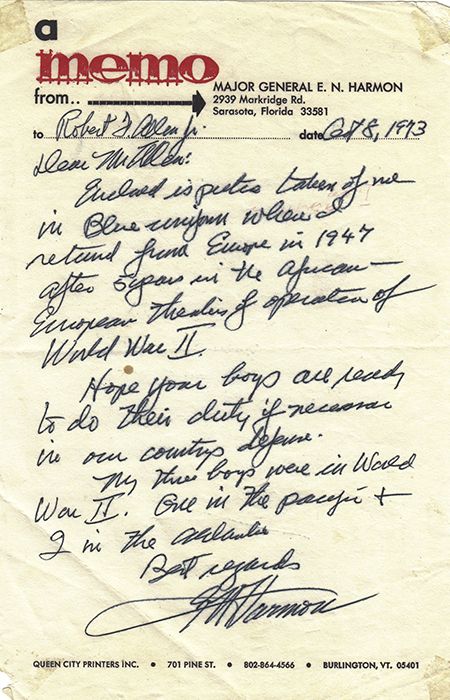 a
memo
from..
MAJOR GENERAL E. N. HARMON
2939 Markridge Rd.
Sarasota, Florida 33581
to Robert F. Allen Jr. date Oct 8, 1973
Dear Mr Allen:
Enclosed is picture taken of me
in Blue uniform when I
returned from Europe in 1947
after 5 years in the African-
European theatre of operation of
World War II.
Hope your boys are ready
to do their duty if necessar
in our countrys defense.
My three boys were in World
War II. One in the pacific +
2 in the Atlantic
Best regards
EN Harmon
QUEEN CITY PRINTERS INC. • 701 PINE ST. • 802-864-4566 • BURLINGTON, VT. 05401